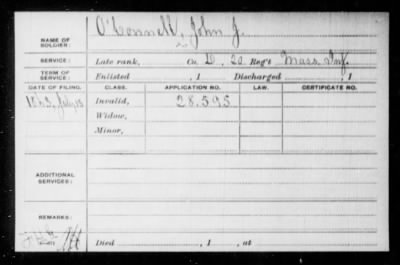 NAME OF SOLDIER: O'Connell, John J.
SERVICE: Late rank, Co. D, 20 Reg't Mass. Inf.
TERM OF SERVICE: Enlisted , 1 Discharged , 1
DATE OF FILING. CLASS. APPLICATION NO. LAW. CERTIFICATE NO.
1863, July 15 Invalid, 28.595
Widow,
Minor,
ADDITIONAL SERVICES:
REMARKS:
Died , 1 , at